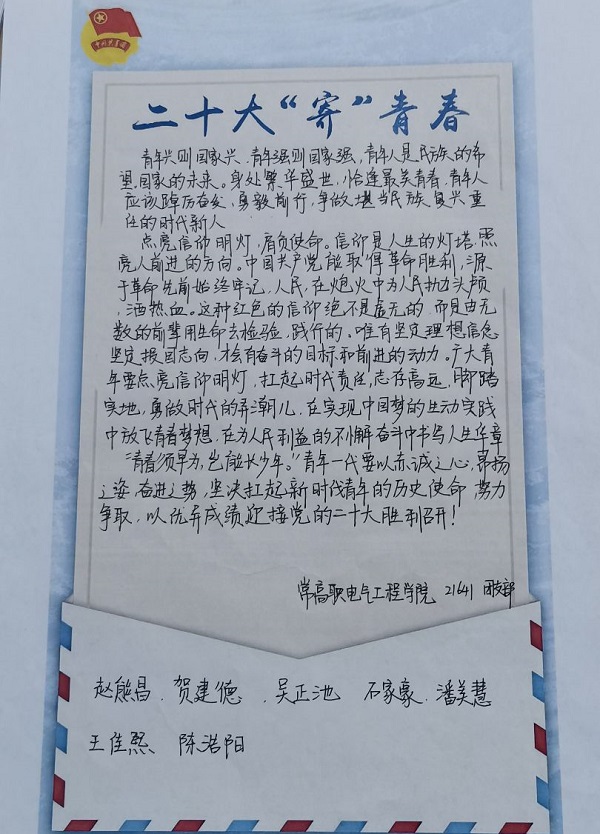 中国共青团
二十大“寄”青春
青年兴则国家兴，青年强则国家强，青年人是民族的希
望，国家的未来。身处繁华盛世，恰逢最美青春，青年人
应该踔厉奋发，勇毅前行，争做堪当民族复兴重
任的时代新人
点亮信仰明灯，肩负使命。信仰是人生的灯塔，照
亮人前进的方向。中国共产党能取得革命胜利，源
于革命先前始终牢记，人民，在炮火中为人抛头颅
，洒热血。这种红色的信仰绝不是虚无的，而是由无
数的前辈用生命去检验，践行的。唯有坚定理想信念
坚定报国志向，才会有奋斗的目标和前进的动力。广大青
年要点亮信仰明灯，扛起时代责任，志存高远，脚踏
实地，勇做时代的弄潮儿，在实现中国梦的生动实践
中放飞青春梦想，在为人民利益的不懈奋斗中书写人生华章
“青春须早为，岂能长少年。”青年一代要以赤诚之心，昂扬
之姿，奋进之势，坚决扛起新时代青年的历史使命，努力
争取，以优异成绩迎接党的二十大胜利召开！
常高职电气工程学院 21641 团支部
赵能昌、贺建德、吴正池 石家豪、潘美慧
王佳熙、陈浩阳